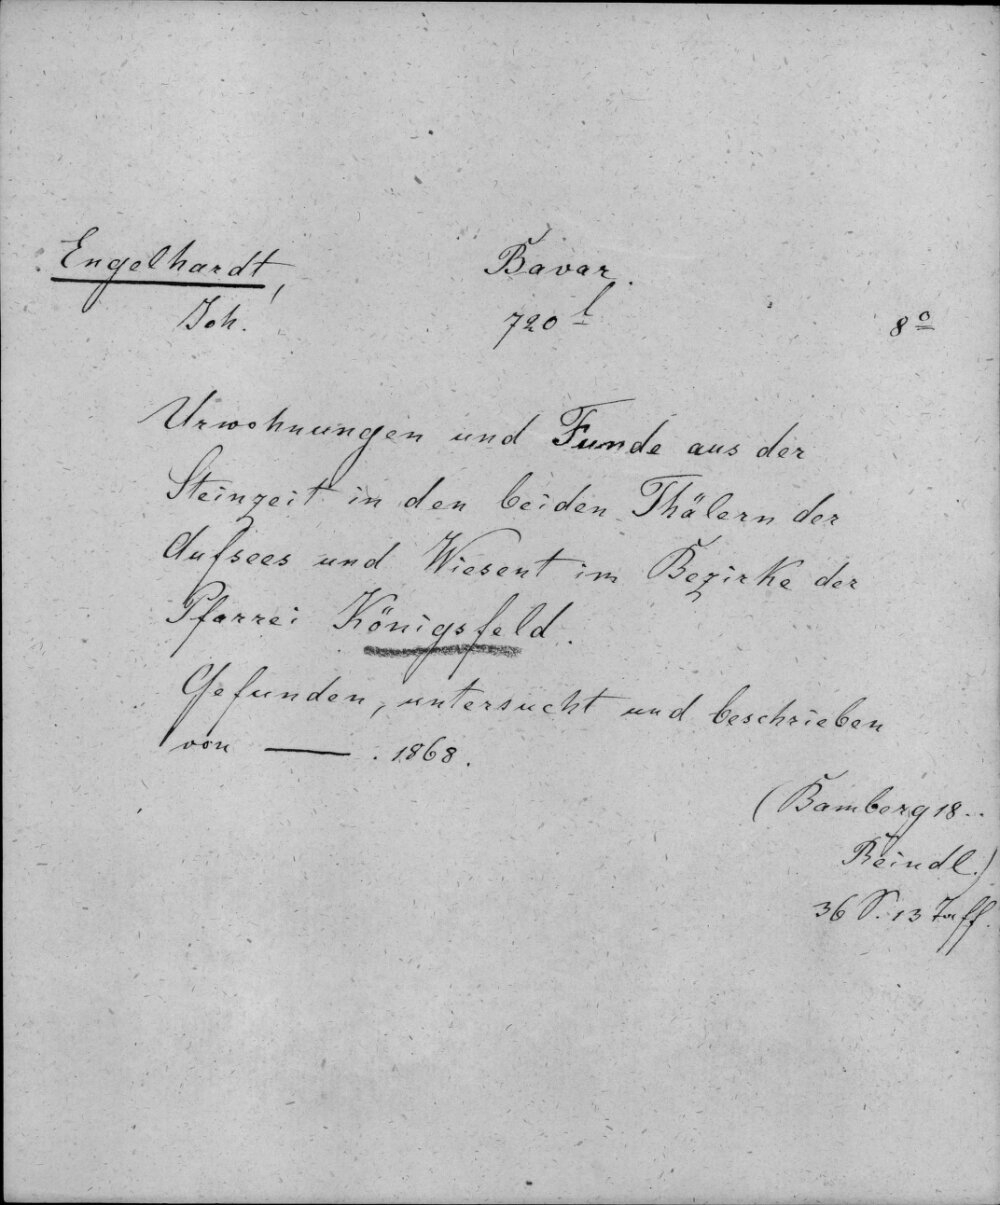 Engelhardt,
Joh.
Bavar.
720 l
8º
Urwohnungen und Funde aus der
Steinzeit in den beiden Thälern der
Aufsees und Wiesent im Bezirke der
Pfarrei Königsfeld.
Gefunden, untersucht und beschrieben
von —— . 1868.
(Bamberg 18..
Reindl.)
36 S. 13 Taff.